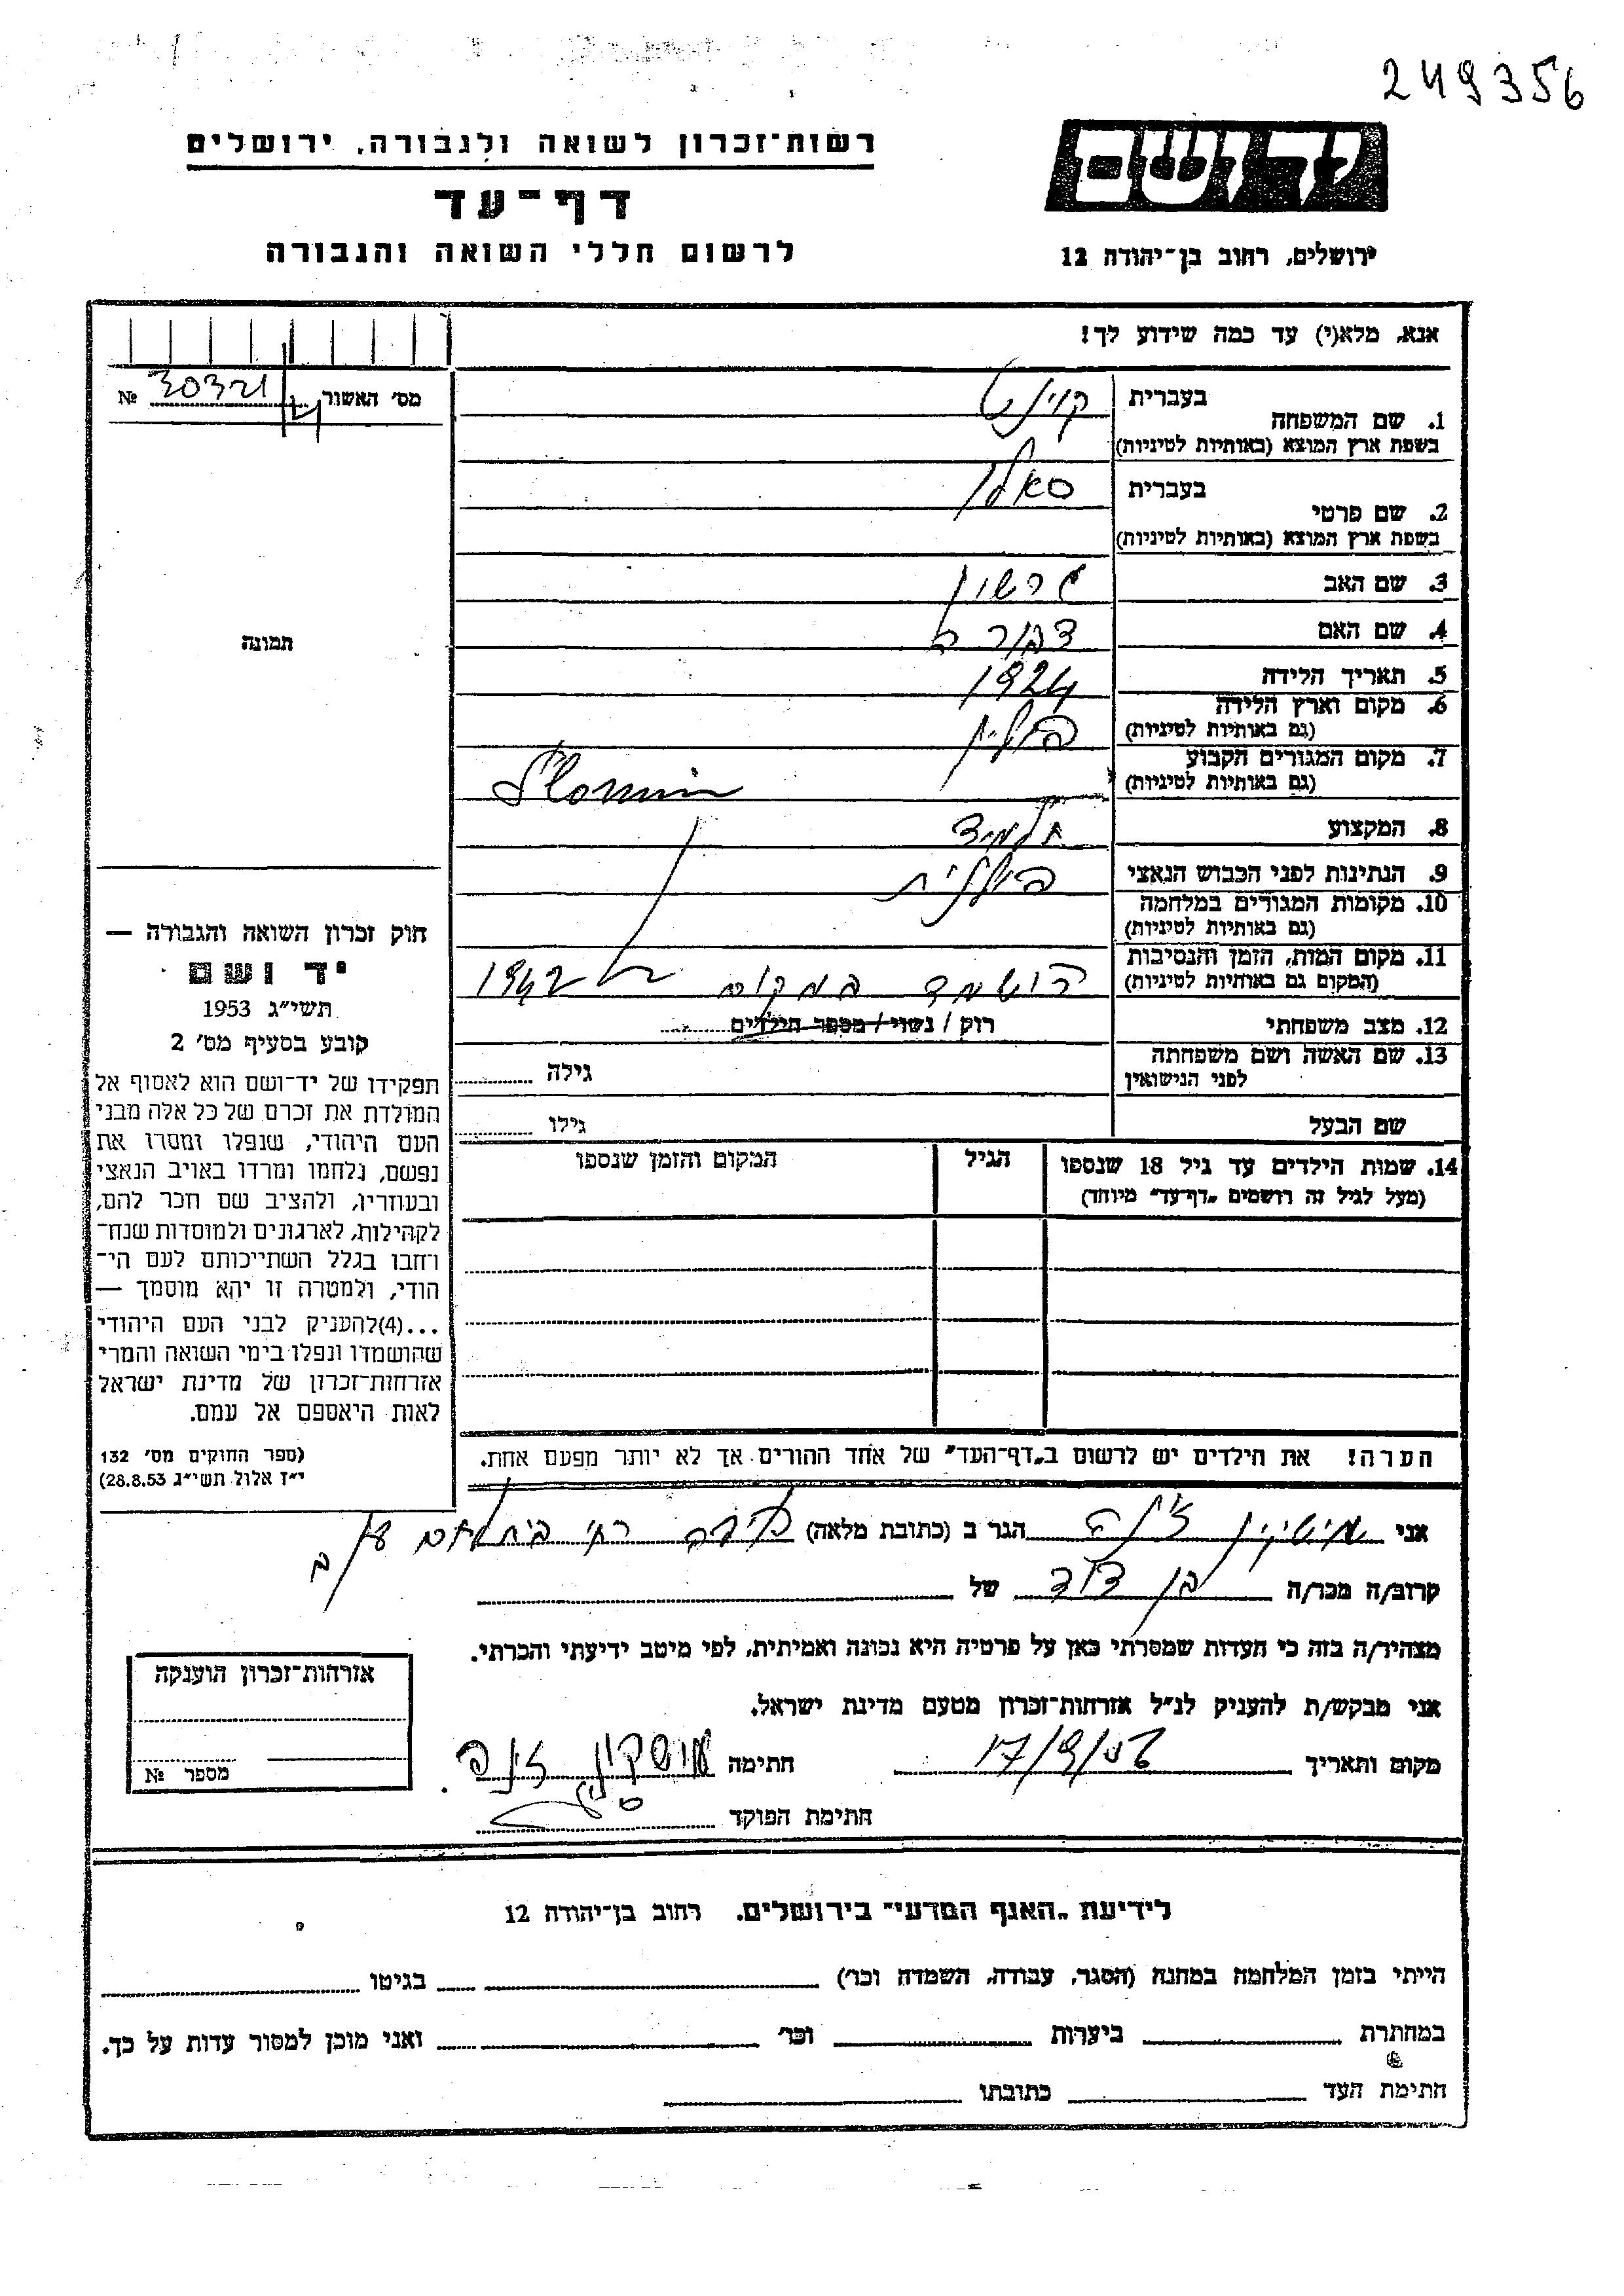 249356
רשות־זכרון לשואה ולגבורה, ירושלים
דף־עד
לרשום חללי השואה והגבורה
יד ושם
ירושלים, רחוב בן־יהודה 12
אנא, מלא(י) עד כמה שידוע לך!
מס׳ האשור 30321 №
תמונה
1. שם המשפחה בעברית
בשפת ארץ המוצא (באותיות לטיניות)
2. שם פרטי בעברית
בשפת ארץ המוצא (באותיות לטיניות)
3. שם האב גרשון
4. שם האם דבורה
5. תאריך הלידה 1924
6. מקום וארץ הלידה פולין
(גם באותיות לטיניות)
7. מקום המגורים הקבוע Slonim
(גם באותיות לטיניות)
8. המקצוע תלמיד
9. הנתינות לפני הכבוש הנאצי פולנית
10. מקומות המגורים במלחמה
(גם באותיות לטיניות)
11. מקום המות, הזמן והנסיבות הושמד במקום ב 1942
(המקום גם באותיות לטיניות)
12. מצב משפחתי רוק / נשוי / מספר הילדים
13. שם האשה ושם משפחתה
לפני הנישואין
גילה
שם הבעל
גילו
14. שמות הילדים עד גיל 18 שנספו
(מעל לגיל זה רושמים „דף־עד״ מיוחד)
הגיל
המקום והזמן שנספו
חוק זכרון השואה והגבורה —
יד ושם
תשי״ג 1953
קובע בסעיף מס׳ 2
תפקידו של יד־ושם הוא לאסוף אל
המולדת את זכרם של כל אלה מבני
העם היהודי, שנפלו ומסרו את
נפשם, נלחמו ומרדו באויב הנאצי
ובעוזריו, ולהציב שם וזכר להם,
לקהילות, לארגונים ולמוסדות שנח־
רבו בגלל השתייכותם לעם הי־
הודי, ולמטרה זו יהא מוסמך —
...(4)להעניק לבני העם היהודי
שהושמדו ונפלו בימי השואה והמרי
אזרחות־זכרון של מדינת ישראל
לאות היאספם אל עמם.
(ספר החוקים מס׳ 132
י״ז אלול תשי״ג 28.8.53)
הערה! את הילדים יש לרשום ב„דף־העד״ של אחד ההורים אך לא יותר מפעם אחת.
אני הגר ב (כתובת מלאה)
קרוב/ה מכר/ה בן דוד של
מצהיר/ה בזה כי העדות שמסרתי כאן על פרטיה היא נכונה ואמיתית, לפי מיטב ידיעתי והכרתי.
אני מבקש/ת להעניק לנ״ל אזרחות־זכרון מטעם מדינת ישראל.
מקום ותאריך 17/9/56 חתימה
חתימת הפוקד
אזרחות־זכרון הוענקה
מספר №
לידיעת „האגף המדעי״ בירושלים. רחוב בן־יהודה 12
הייתי בזמן המלחמה במחנה (הסגר, עבודה, השמדה וכו׳) בגיטו
במחתרת ביערות וכו׳ ואני מוכן למסור עדות על כך.
חתימת העד כתובתו